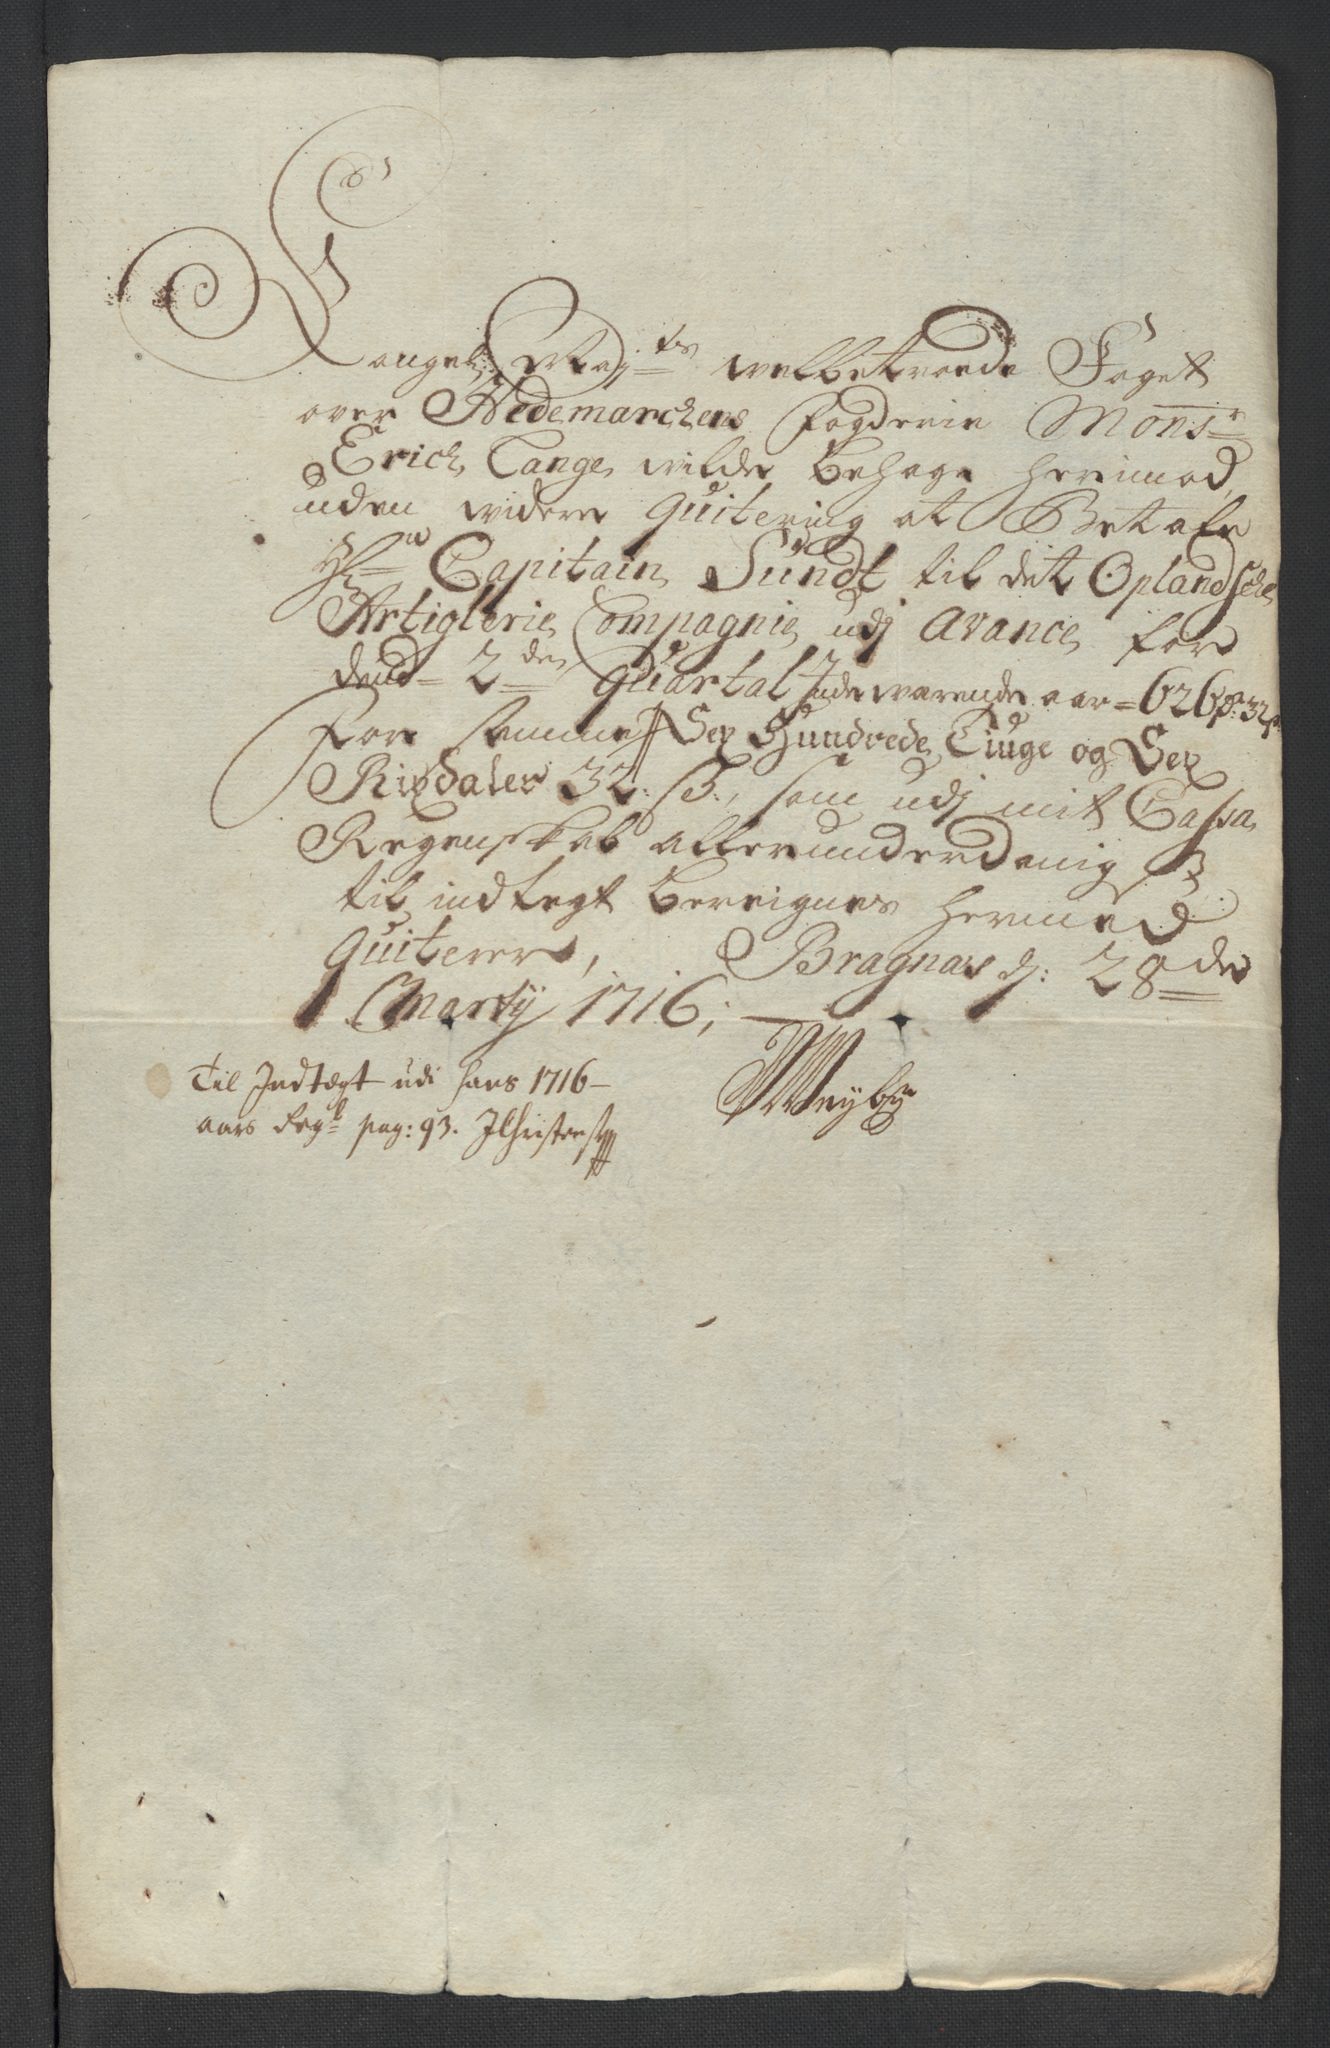 Kongel: Maj:ts welbetroede Foget
over Hedemarchens fogderie Monsr
Erich Lange wilde behage herimod,
uden widere quitering at Betale
Hr Capitain Sundt til det Oplandsche
Artiglerie Compagnie udj Avance for
2den Quartal Indewærende aar = 626 rd: 32 s
for samme Sex Hundrede Tiuge og Sex
Rixdaler 32: s:, som udj mit Cassa
Regenskab allerunderdanigst
til indtegt bereignes hermed
quiterer, Bragnæs d: 28de
Martij 1716;
Til Indtægt udi hans 1716
aars Regsk pag: 93. JChristensen